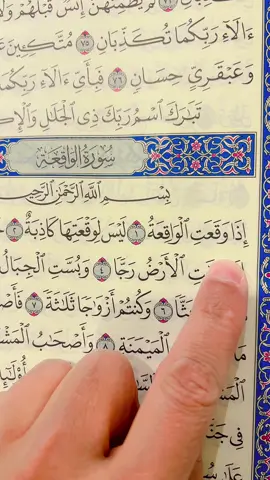 لَمْ يَطْمِثْهُنَّ إِنسٌ قَبْلَهُمْ وَلَا
ءَالَآءِ رَبِّكُمَا تُكَذِّبَانِ ٧٥ مُتَّكِـِٔينَ
وَعَبْقَرِيٍّ حِسَانٍ ٧٦ فَبِأَيِّ ءَالَآءِ رَبِّكُمَا
تَبَٰرَكَ ٱسْمُ رَبِّكَ ذِى ٱلْجَلَٰلِ
سُورَةُ الوَاقِعَةِ
بِسْمِ ٱللَّهِ ٱلرَّحْمَٰنِ ٱلرَّحِيمِ
إِذَا وَقَعَتِ ٱلْوَاقِعَةُ ١ لَيْسَ لِوَقْعَتِهَا كَاذِبَةٌ ٢
ٱلْأَرْضُ رَجًّا ٤ وَبُسَّتِ ٱلْجِبَالُ
٦ وَكُنتُمْ أَزْوَٰجًا ثَلَٰثَةً ٧
ٱلْمَيْمَنَةِ ٨ وَأَصْحَٰبُ
فِى